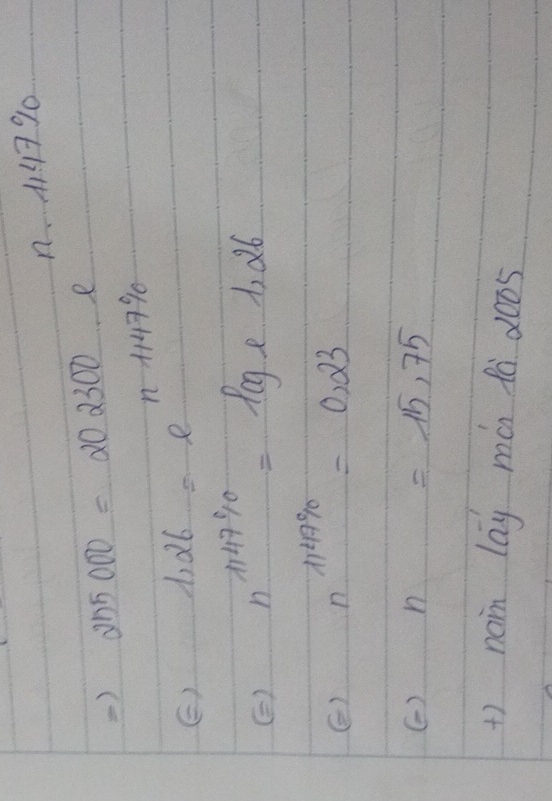 =) 255 000 = 202300 . e n. 1,47%
(=) 1,26 = e n 1,47%
(=) n 1,47% = log e 1,26
(=) n 1,47% = 0,23
(=) n = 15,75
+) năm lấy mốc là 2005